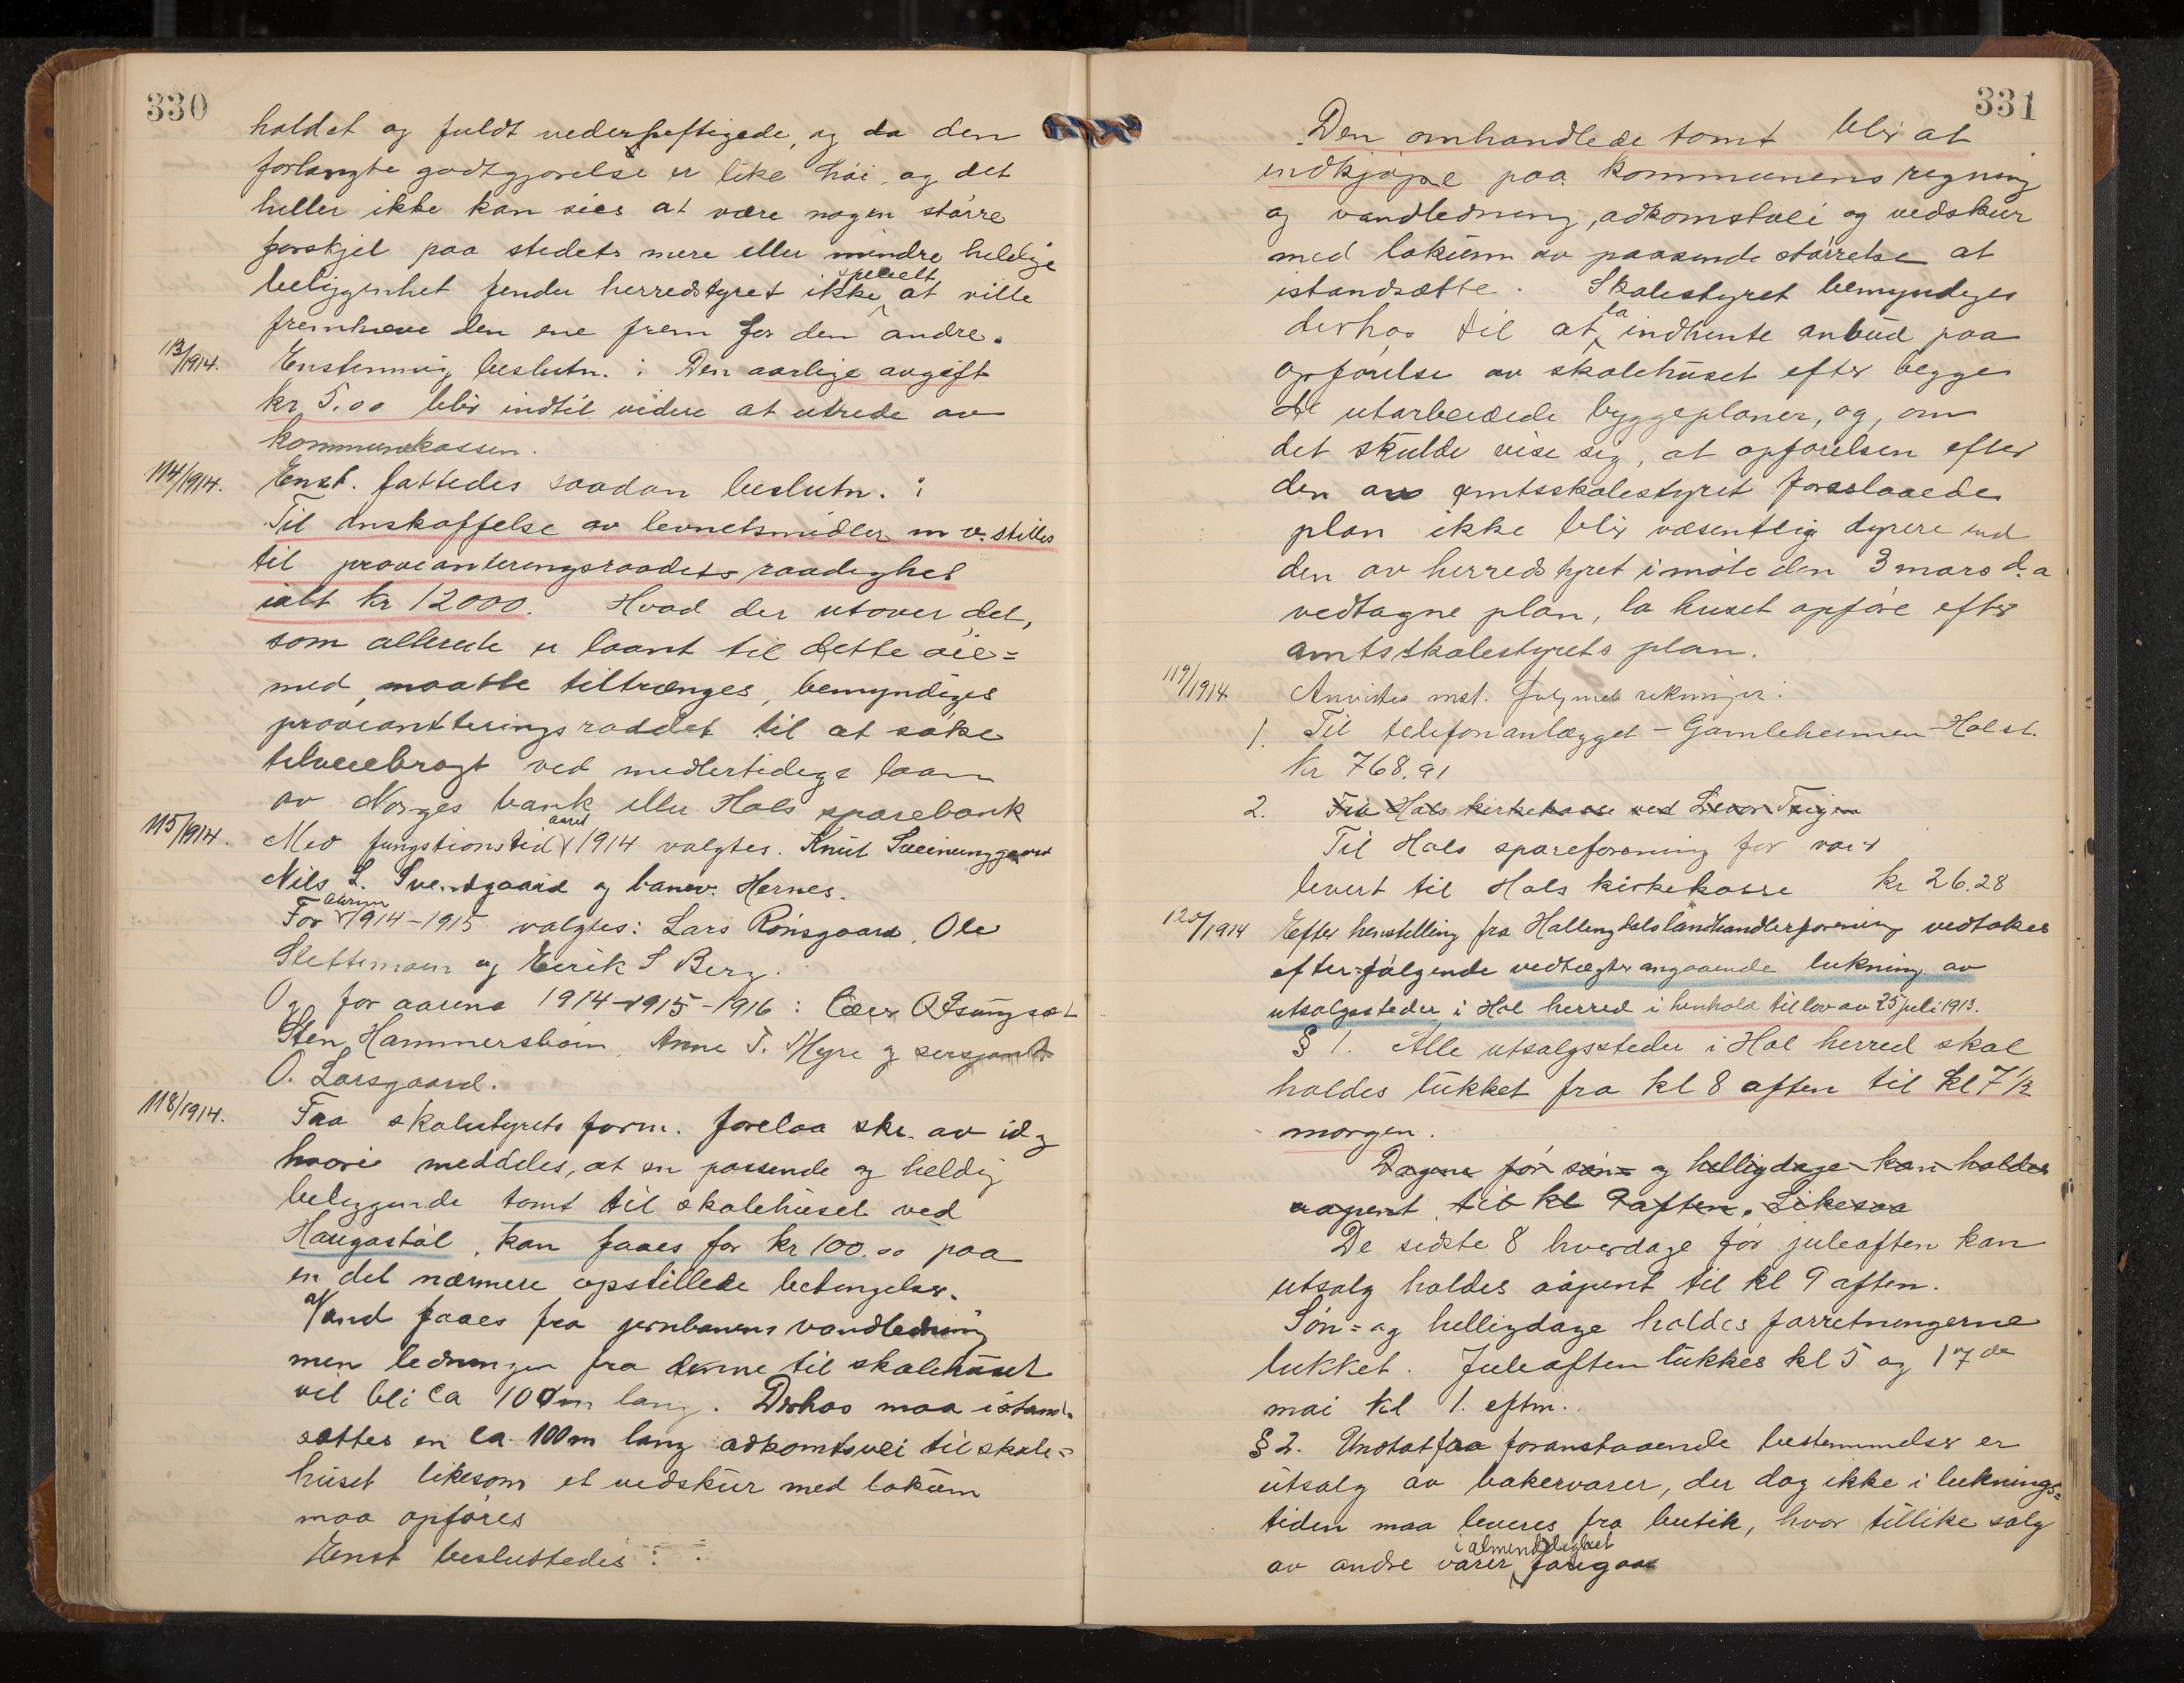 330
holdet og fuldt vederheftigede, og da den
forlangte godtgjørelse er like høi, og det
heller ikke kan sies at være nogen större
forskjel paa stedets mere eller mindre heldige
beliggenhet finder herredstyret ikke specielt at ville
fremheve den ene frem for den andre.
113/1914. Enstemmig beslutn. : Den aarlige avgift
kr 5.00 blir indtil videre at utrede av
kommunekassen.
114/1914. Enst. fattedes saadan beslutn. :
Til anskaffelse av levnetsmidler m v. stilles
til provianteringsraadets raadighet
ialt kr 12000. Hvad der utover det,
som allerede er laant til dette øie=
med, maatte tiltrænges, bemyndiges
provianteringsraadet til at søke
tilveiebragt ved midlertidige laan
av Norges bank eller Hols sparebank
115/1914. Med fungstionstid aaret 1914 valgtes. Knut Sveinunggaard
Nils L. Svendgaard og banev. Hernes.
For aarene 1914-1915 valgtes: Lars Rønsgaard, Ole
Slettemoen og Eirik S Berg.
Og for aarene 1914-1915-1916:
Sten Hammersbøin, Anne T. Myre og sersjant
O. Larsgaard.
118/1914. Fra skolestyrets form. forelaa skr. av idag
hvori meddeles, at en passende og heldig
beliggende tomt til skolehuset ved
Haugastøl, kan faaes for kr 100.00 paa
en del nærmere opstillede betingelser.
Vand faaes fra jernbanens vandledning
men ledningen fra denne til skolehuset
vil bli ca 100m lang. Derhos maa istand=
sættes en ca 100m lang adkomstvei til skole=
huset likesom et vedskur med lokum
maa opføres
Enst besluttedes :
331
Den omhandlede tomt blir at
indkjøpe paa kommunens regning
og vandledning, adkomstvei og vedskur
med lokum av passende størrelse at
istandsætte. Skolestyret bemyndiges
derhos til at la indhente anbud paa
opførelse av skolehuset efter begge
de utarbeidede byggeplaner, og, om
det skulde vise sig, at opførelsen efter
den av amtsskolestyret forselaaede
plan ikke blir væsentlig dyrere end
den av herredstyret i møte den 3 mars d.a
vedtagne plan, la huset opføre efter
amtsskolestyrets plan.
119/1914 Anvistes enst. følgende rekninger:
1. Til telefonanlægget - Gamleheimen - Holst.
Kr 768.91
2. Fra Hols kirkekasse ved
Til Hols spareforening for
levert til Hols kirkekasse kr 26.28
120/1914 Efter henstilling fra Hallingdals landhandlerforening vedtokes
efter=følgende vedtægter angaaende lukning av
utsalgssteder i Hol herred i henhold til lov av 25 juli 1913.
§ 1. Alle utsalgssteder i Hol herred skal
holdes lukket fra kl 8 aften til kl 7 1/2
morgen.
Dagene før søn= og helligdage kan holdes
aapent til kl 9 aften. Likesaa
De sidste 8 hverdage før juleaften kan
utsalg holdes aapent til kl 9 aften.
Søn= og helligdage holdes forretningerne
lukket. Juleaften lukkes kl 5 og 17de
mai kl 1. eftm.
§ 2. Undtat fra foranstaaende bestemmelser er
utsalg av bakervarer, der dog ikke i luknings=
tiden maa leveres fra butik, hvor tillike salg
av andre varer i almindelighet foregaar